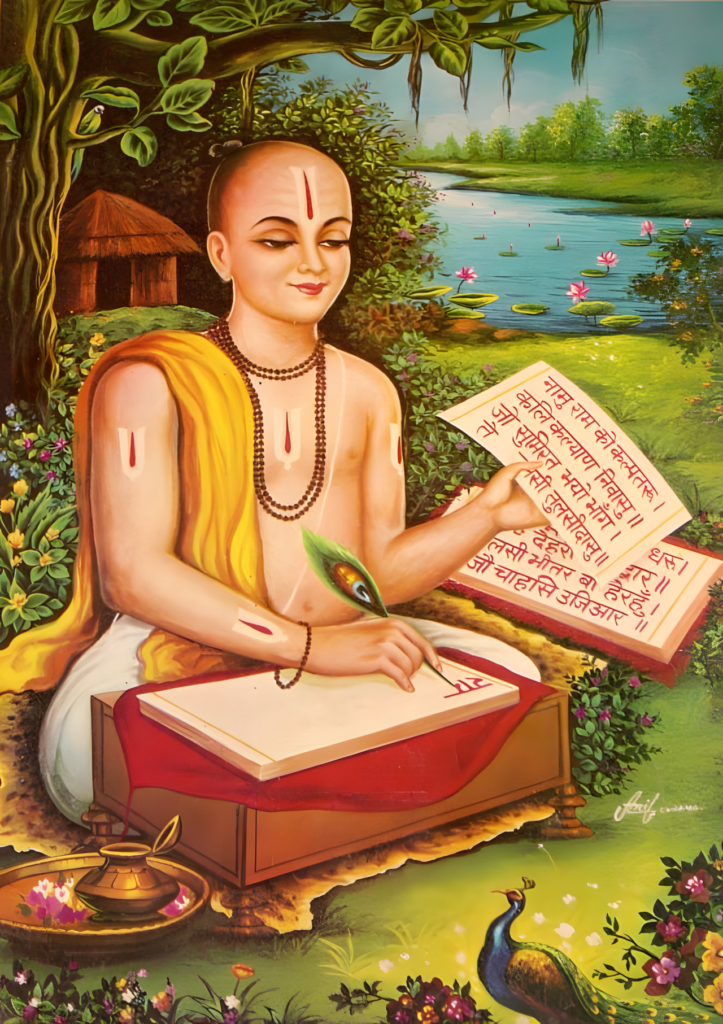 नामु राम को कल्पतरू।
कलि कल्याण निवासु॥
जो सुमिरत भयो भाँग।
सी तुलसीदासु॥
धरू।
देहरी
लसी भीतर बा हेरहुँ।
जो चाहासि उजिआर॥